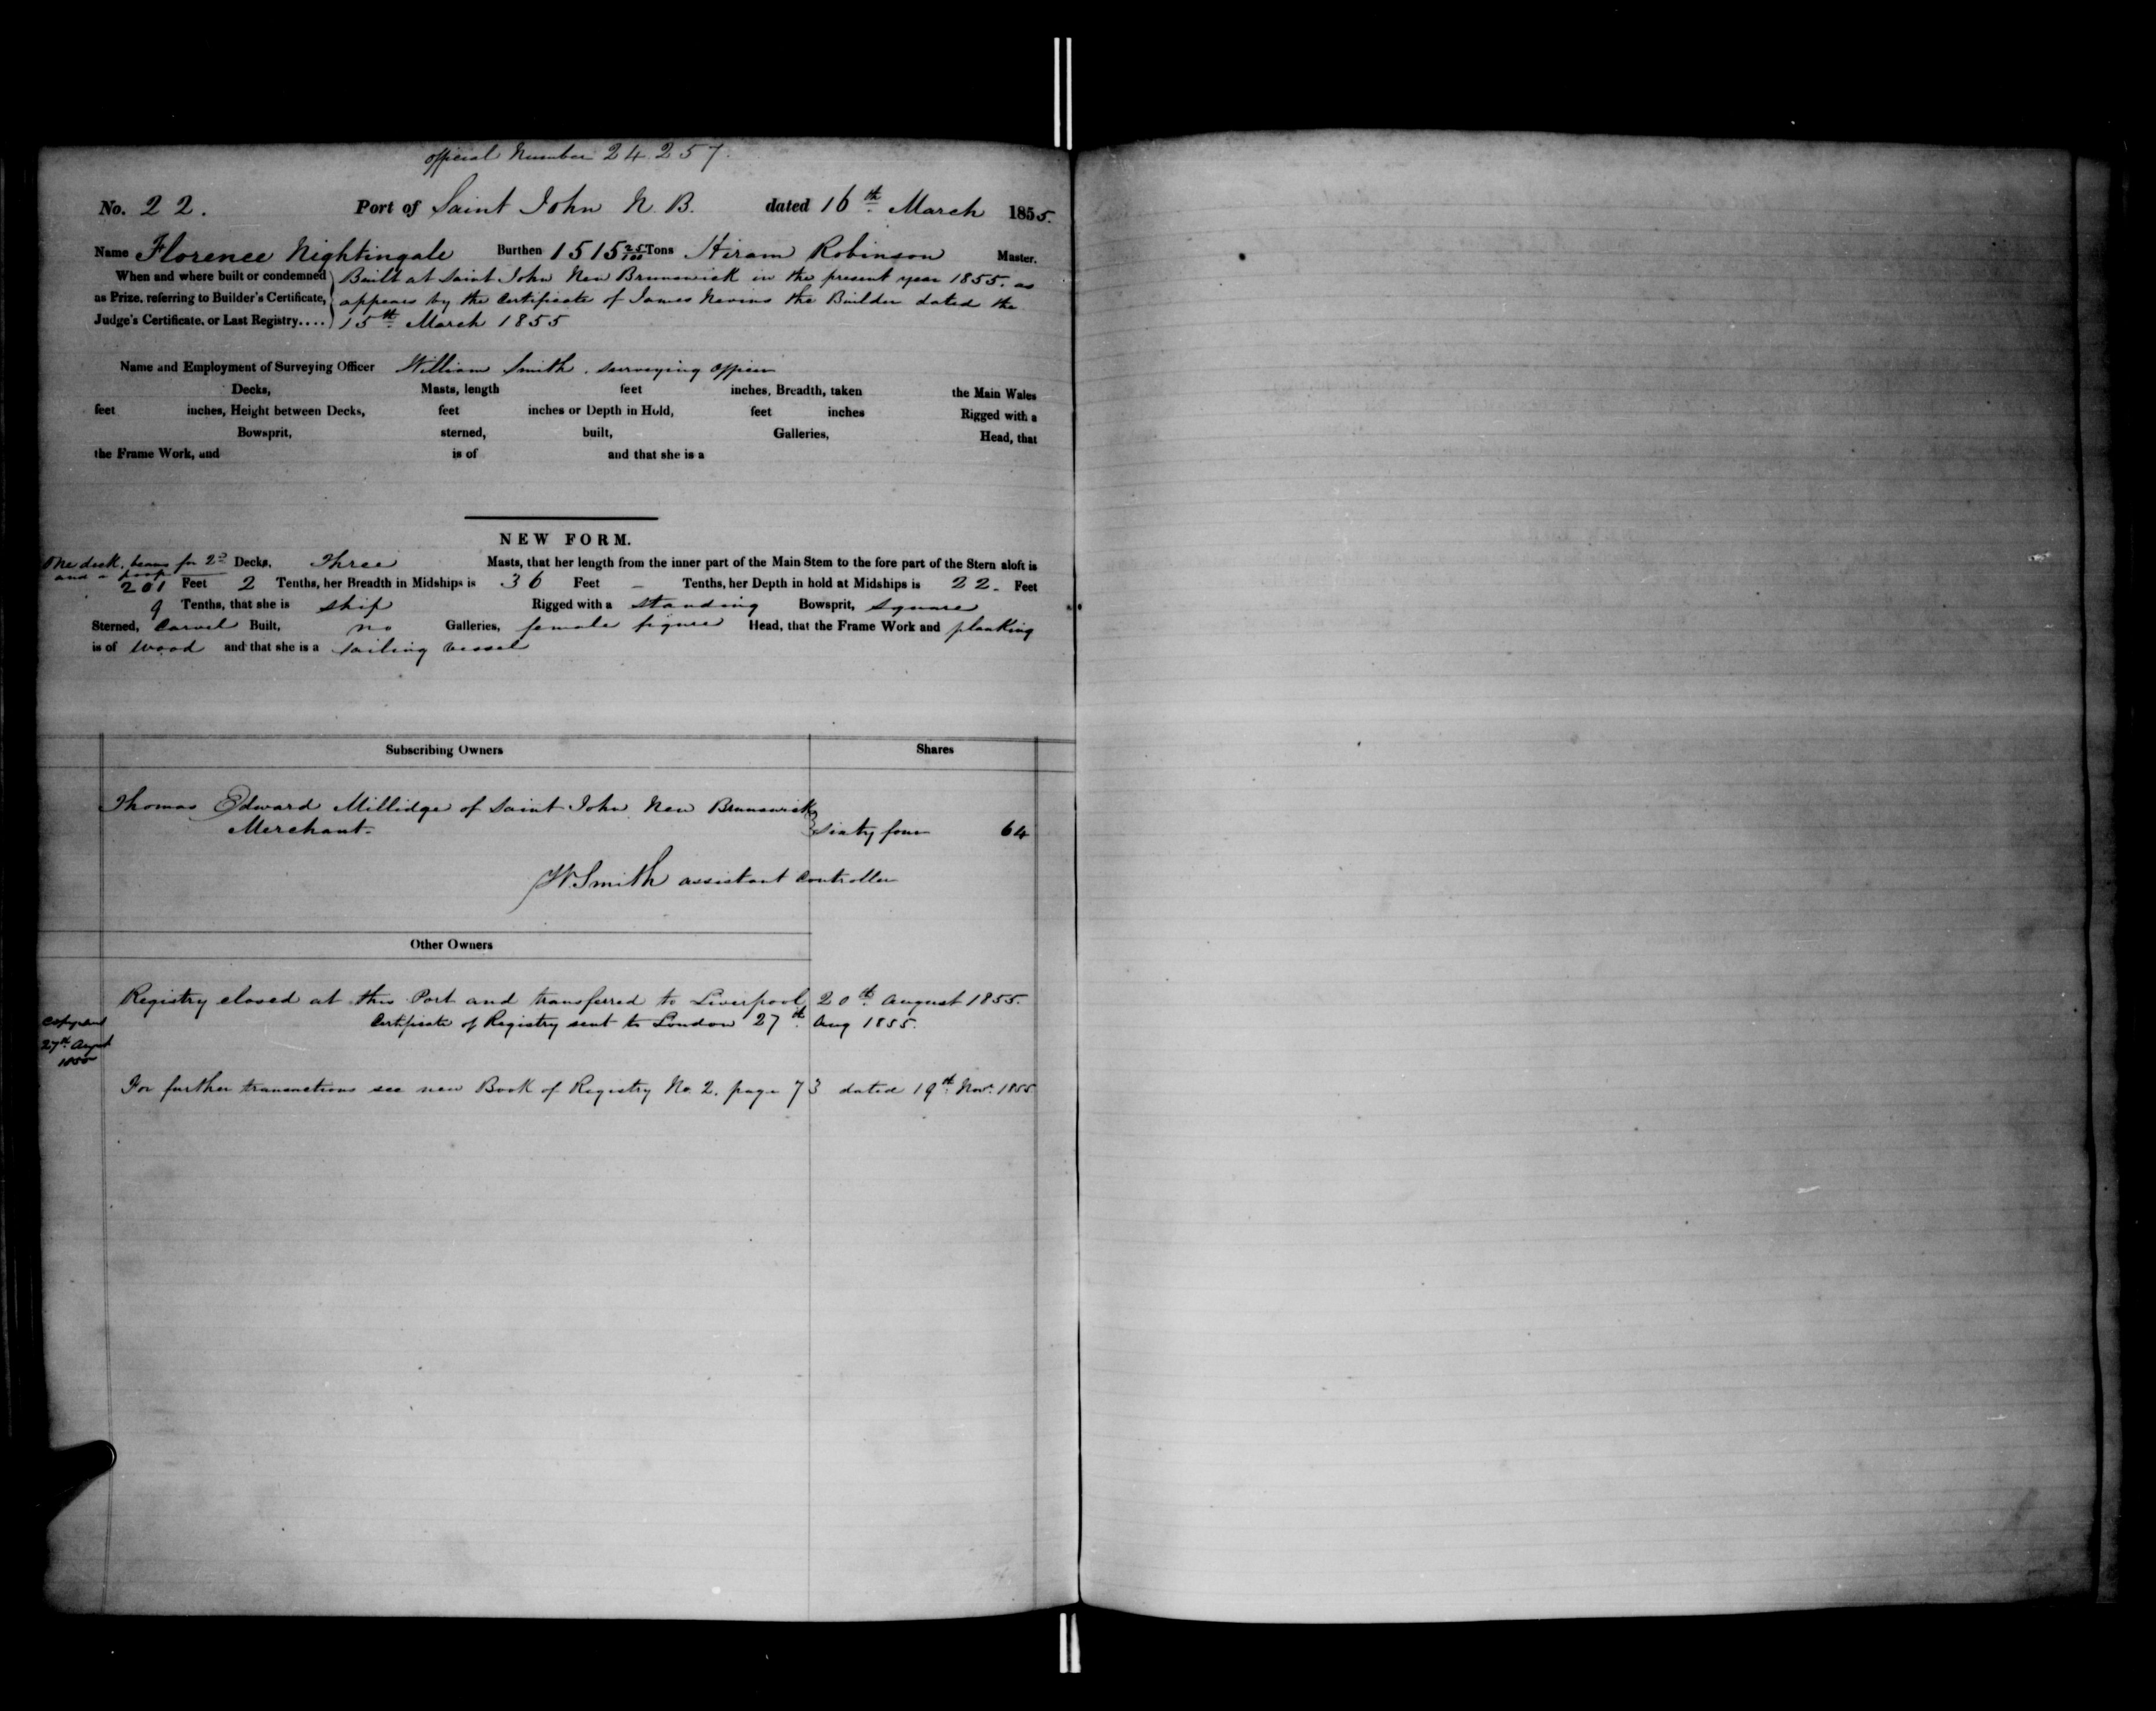 official Number 24.257.
No. 22. Port of Saint John N. B. dated 16th March 1855.
Name Florence Nightingale Burthen 1515 25/100 Tons Hiram Robinson Master.
When and where built or condemned Built at Saint John New Brunswick in the present year 1855. as
as Prize, referring to Builder's Certificate, appears by the Certificate of James Nevins the Builder dated the
Judge's Certificate, or Last Registry.... 15th March 1855
Name and Employment of Surveying Officer William Smith. Surveying officer
Decks, Masts, length feet inches, Breadth, taken the Main Wales
feet inches, Height between Decks, feet inches or Depth in Hold, feet inches Rigged with a
Bowsprit, sterned, built, Galleries, Head, that
the Frame Work, and is of and that she is a
NEW FORM.
One deck, beams for 2d Decks, Three Masts, that her length from the inner part of the Main Stem to the fore part of the Stern aloft is
and a poop
201 Feet 2 Tenths, her Breadth in Midships is 36 Feet – Tenths, her Depth in hold at Midships is 22 - Feet
9 Tenths, that she is ship Rigged with a standing Bowsprit, square
Sterned, Carvel Built, no Galleries, female figure Head, that the Frame Work and planking
is of wood and that she is a sailing vessel
Subscribing Owners Shares
Thomas Edward Millidge of Saint John New Brunswick
Merchant- Sixty four 64
W. Smith assistant Controller
Other Owners
Registry closed at this Port and transferred to Liverpool, 20th August 1855.
Certificate of Registry sent to London 27th Aug 1855.
Copy sent
27th August
1855
For further transactions see new Book of Registry No 2. page 73 dated 19th Nov. 1855